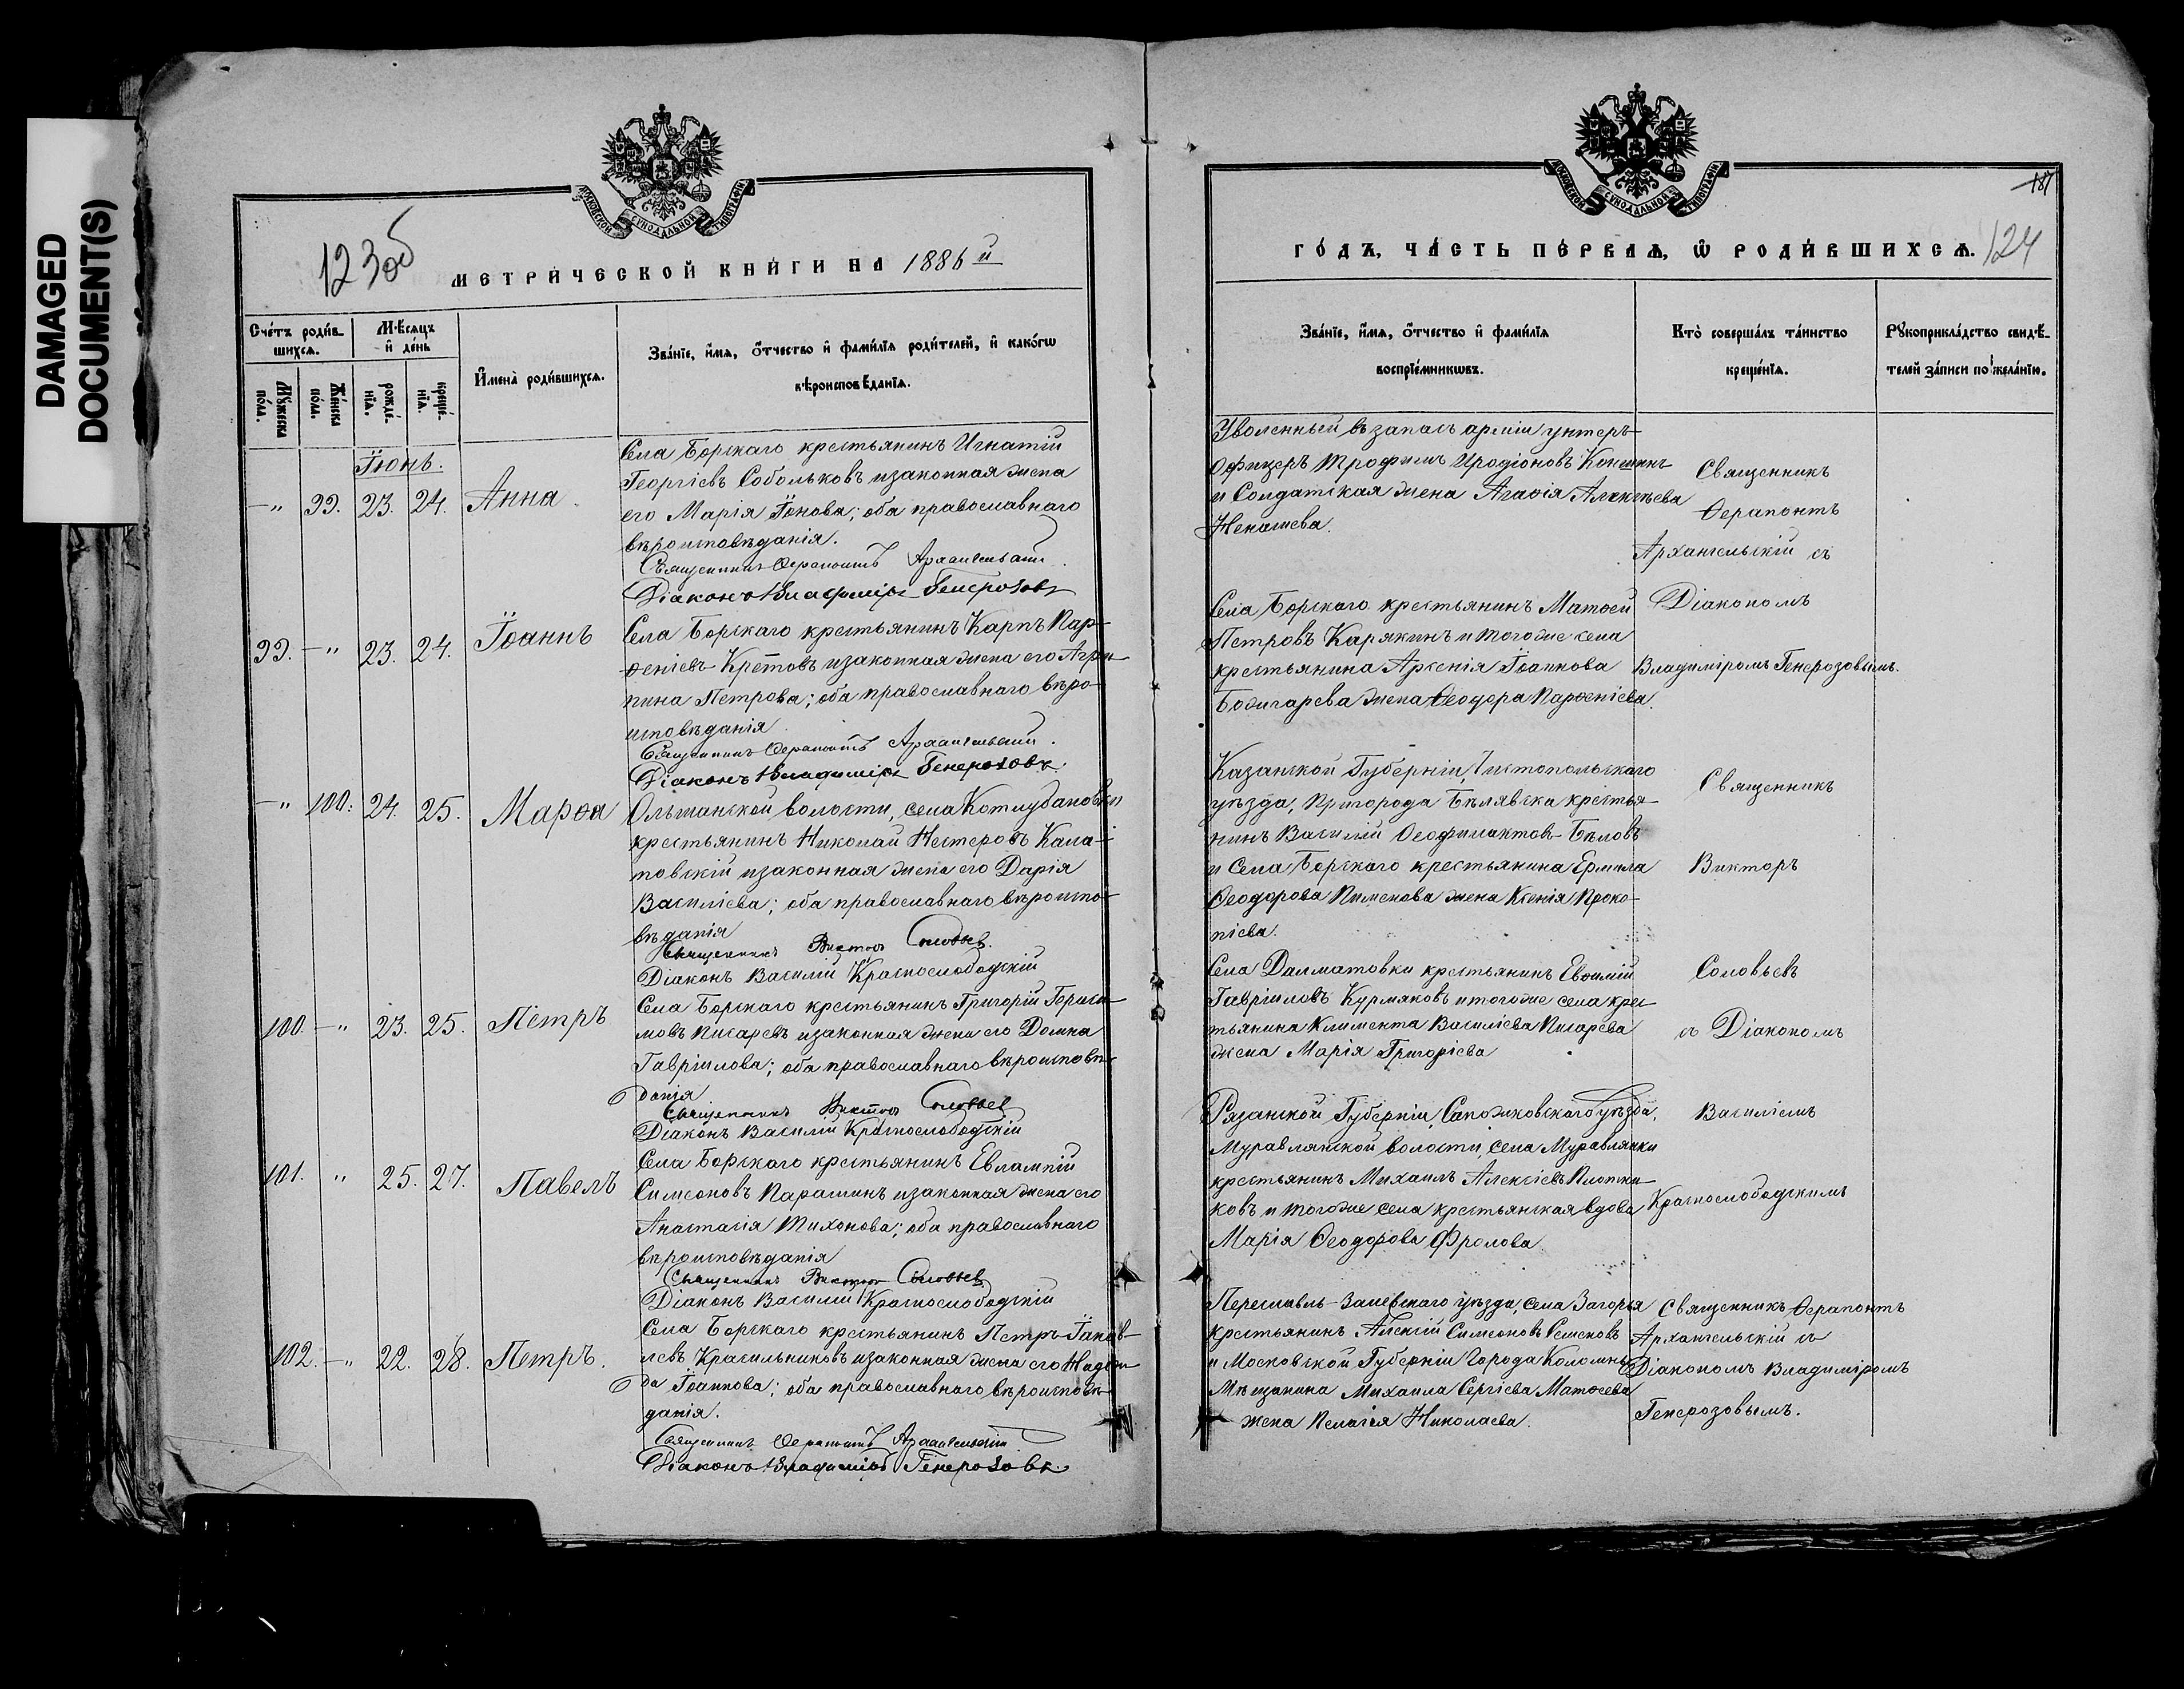 DAMAGED
DOCUMENT(S)
МОСКОВСКОЙ СѴНОДАЛЬНОЙ ТИПОГРАФІИ
123об
МЕТРИ́ЧЕСКОЙ КНИ́ГИ НА 1886й
Сче́тъ роди́в-
шихсѧ.
Мѣ́сѧцъ
и҆ де́нь
Мꙋ́жеска
по́ла.
Же́нска
по́ла.
рожде́-
нїѧ.
креще́-
нїѧ.
И҆мена̀ роди́вшихсѧ.
Зва́нїе, и҆́мѧ, ѻ҆́тчество и҆ фами́лїѧ роди́телей, и҆ како́гѡ
вѣроисповѣ́данїѧ.
Іюнь.
-" 99. 23. 24. Анна
Села Борскаго крестьянинъ Игнатій
Георгіевъ Собольковъ и законная жена
его Марія Іонова; оба православнаго
вѣроисповѣданія.
Священникъ Ѳерапонтъ Архангельскій
Діаконъ Владиміръ Генерозовъ
99. -" 23. 24. Іоаннъ
Села Борскаго крестьянинъ Карпъ Пар-
ѳеніевъ Кретовъ и законная жена его Агри-
пина Петрова; оба православнаго вѣро-
исповѣданія
Священникъ Ѳерапонтъ Архангельскій.
Діаконъ Владиміръ Генерозовъ.
-" 100. 24. 25. Марѳа
Ольшанской волости, села Котлубановки
крестьянинъ Николай Нестеровъ Кала-
товскій и законная жена его Дарія
Василіева; оба православнаго вѣроиспо-
вѣданія
Священникъ Викторъ Соловьев.
Діаконъ Василій Краснослободскій
100. -" 23. 25. Петръ
Села Борскаго крестьянинъ Григорій Гераси-
мовъ Писаревъ и законная жена его Домна
Гавріилова; оба православнаго вѣроисповѣ-
данія
Священникъ Викторъ Соловьев
Діаконъ Василій Краснослободскій
101. " 25. 27. Павелъ
Села Борскаго крестьянинъ Евлампій
Симеоновъ Парашинъ и законная жена его
Анастасія Тихонова; оба православнаго
вѣроисповѣданія
Священникъ Викторъ Соловьев
Діаконъ Василій Краснослободскій
102. -" 22. 28. Петръ.
Села Борскаго крестьянинъ Петръ Іаков-
левъ Красильниковъ и законная жена его Надеж-
да Іоаннова; оба православнаго вѣроисповѣ-
данія.
Священникъ Ѳерапонтъ Архангельскій
Діаконъ Владиміръ Генерозовъ.
МОСКОВСКОЙ СѴНОДАЛЬНОЙ ТИПОГРАФІИ
ГО́ДЪ, ЧА́СТЬ ПЕ́РВАѦ, Ѡ҆ РОДИ́ВШИХСѦ. 124
Зва́нїе, и҆́мѧ, ѻ҆́тчество и҆ фами́лїѧ
воспрїе́мникѡвъ.
Кто̀ соверша́лъ та́инство
креще́нїѧ.
Рꙋкоприкла́дство свидѣ́-
телей за́писи по жела́нїю.
Уволенный въ запасъ арміи унтеръ-
Офицеръ Трофимъ Иродіоновъ Коншинъ
и Солдатская жена Агаѳія Алексѣева
Ненашева.
Священникъ
Ѳерапонтъ
Архангельскій съ
Села Борскаго крестьянинъ Матѳей
Петровъ Карякинъ и того же села
крестьянина Арсенія Іоаннова
Божигарева жена Ѳеодора Парѳеніева.
Діакономъ
Владиміромъ Генерозовымъ.
Казанской Губерніи, Чистопольскаго
уѣзда, Пригорода Бѣлявска крестья-
нинъ Василій Ѳеофилактов Бѣловъ
и Села Борскаго крестьянина Ермила
Ѳеодорова Пименова жена Ксенія Проко-
піева.
Священникъ
Викторъ
Села Далматовки крестьянинъ Евѳимій
Гавріиловъ Курмяковъ и того же села крес-
тьянина Климента Василіева Писарева
жена Марія Григоріева
Соловьевъ
съ Діакономъ
Рязанской Губерніи, Сапожковскаго уѣзда,
Муравлянской волости, села Муравлянки
крестьянинъ Михаилъ Алексіевъ Плотни-
ковъ и того же села крестьянская вдова
Марія Ѳеодорова Фролова.
Василіемъ
Краснослободскимъ
Переславль-Залевскаго уѣзда, села Загорья
крестьянинъ Алексій Симеоновъ Семеновъ
и Московской Губерніи Города Коломны
Мѣщанина Михаила Сергіева Матѳеева
жена Пелагія Николаева.
Священникъ Ѳерапонтъ
Архангельскій съ
Діакономъ Владиміромъ
Генерозовымъ.